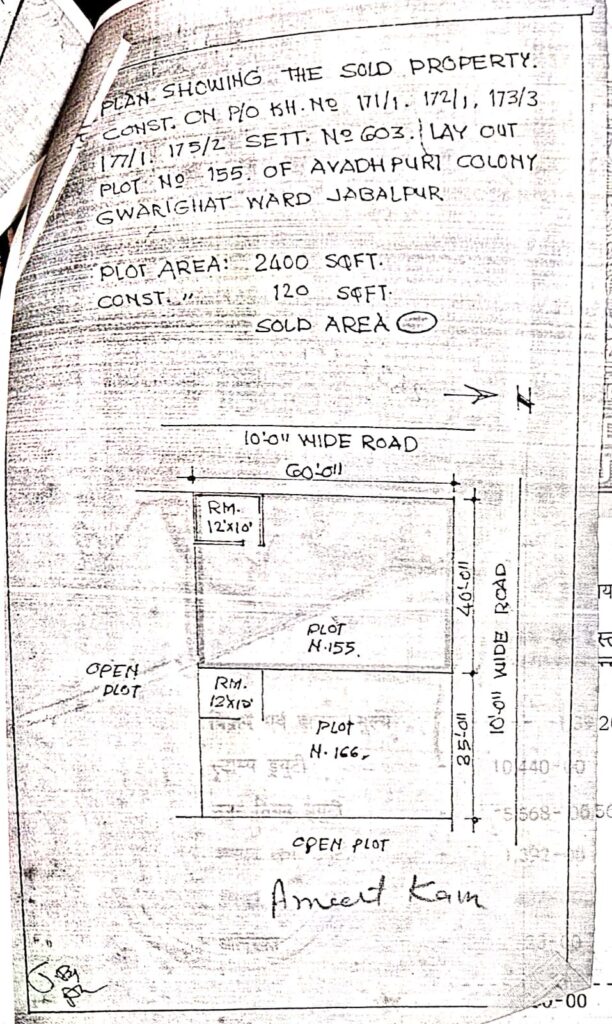 PLAN SHOWING THE SOLD PROPERTY.
CONST. ON P/O KH. Nº 171/1. 172/1, 173/3
177/1. 175/2 SETT. Nº 603. LAY OUT
PLOT Nº 155. OF AVADHPURI COLONY
GWARIGHAT WARD JABALPUR
PLOT AREA: 2400 SQFT.
CONST. " 120 SQFT.
SOLD AREA
10'-0" WIDE ROAD
60'-0"
RM.
12'X10'
40'-0"
10'-0" WIDE ROAD
PLOT
N.155.
OPEN
PLOT
RM.
12'X10'
PLOT
N. 166.
35'-0"
10,440-00
5,568-00
OPEN PLOT
Ameet Kaur
By
00-00